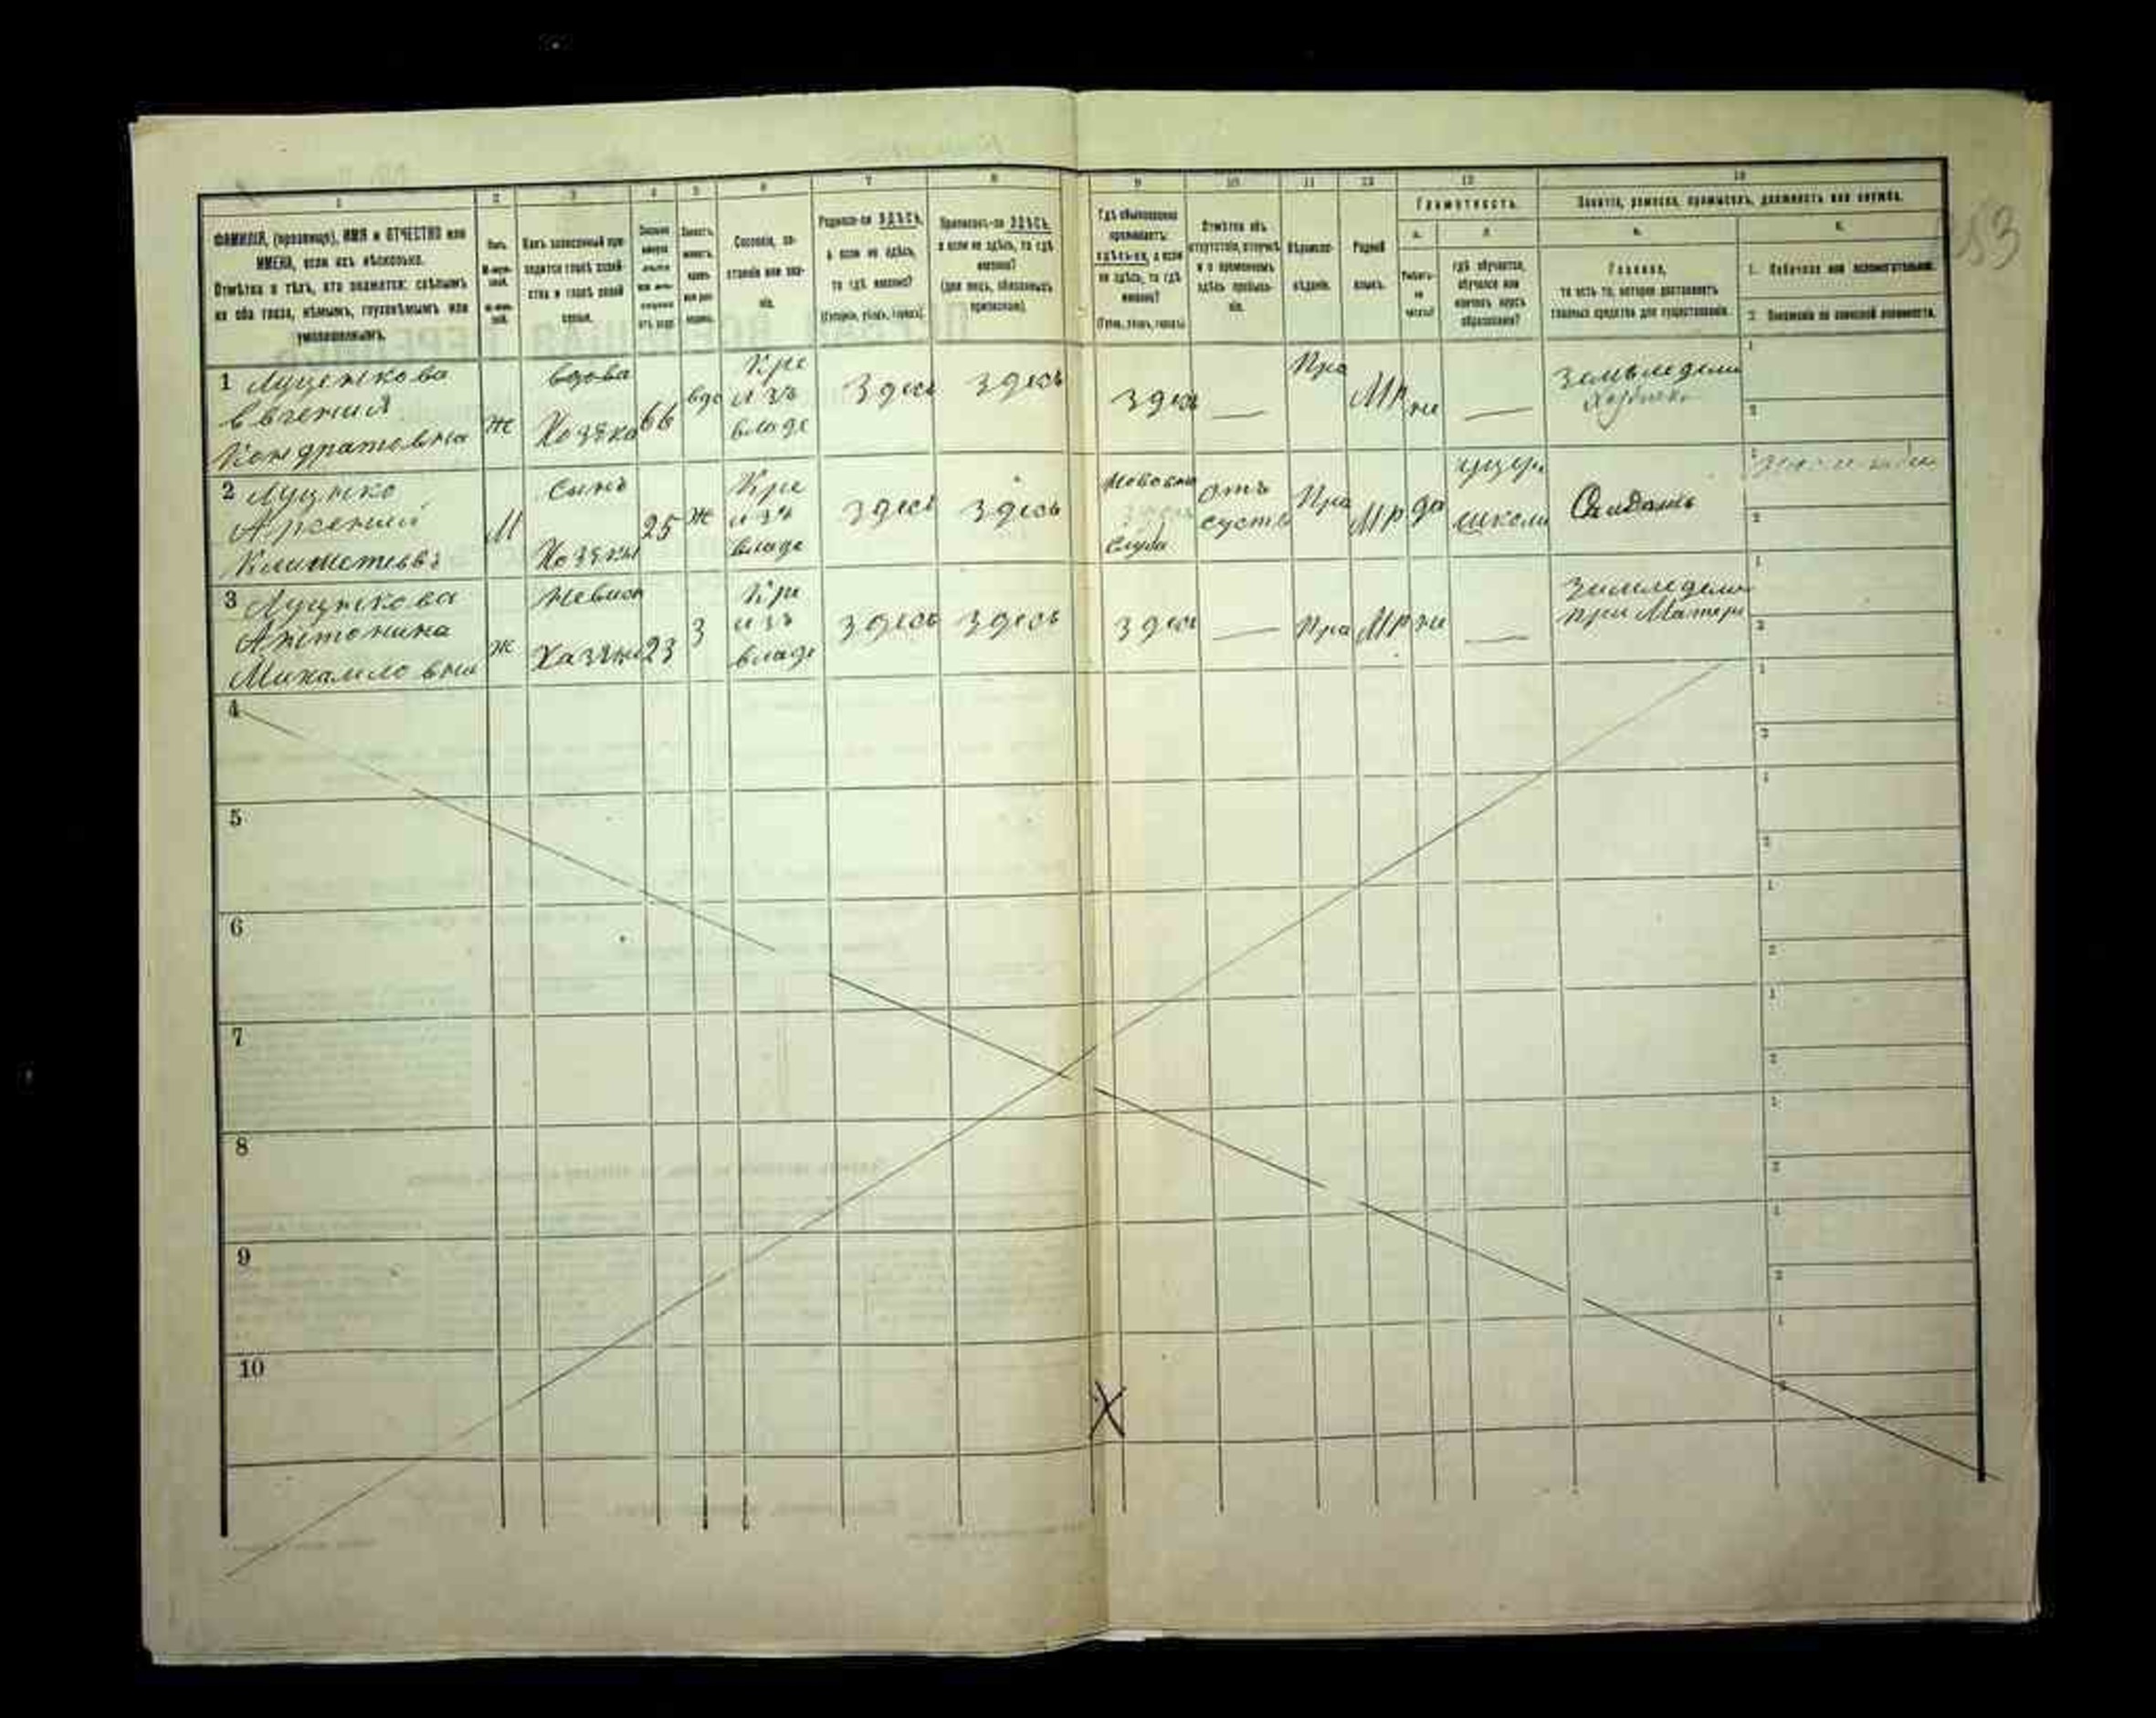 1 2 3 4 5 6 7 8 9 10 11 12 13 14
ФАМИЛІЯ, (прозвище), ИМЯ и ОТЧЕСТВО или
ИМЕНА, если ихъ нѣсколько.
Отмѣтка о тѣхъ, кто окажется: слѣпымъ
на оба глаза, нѣмымъ, глухонѣмымъ или
умалишеннымъ.
Полъ.
Какъ записанный при-
ходится главѣ хозяй-
ства и главѣ своей
семьи.
Сословіе, со-
стояніе или зва-
ніе.
Родился-ли ЗДѢСЬ,
а если не здѣсь,
то гдѣ именно?
(Губернія, уѣздъ, городъ).
Приписанъ-ли ЗДѢСЬ,
а если не здѣсь, то гдѣ
именно?
(для лицъ, обязанныхъ
припискою).
Гдѣ обыкновенно
проживаетъ:
здѣсь-ли, а если
не здѣсь, то гдѣ
именно?
(Губ., уѣздъ, городъ).
Отмѣтка объ
отсутствіи, отлучкѣ
и о временномъ
здѣсь пребыва-
ніи.
Вѣроиспо-
вѣданіе.
Родной
языкъ.
Грамотность.
а. б.
Умѣетъ-
ли
читать?
гдѣ обучается,
обучался или
кончилъ курсъ
образованія?
Занятіе, ремесло, промыселъ, должность или служба.
а. б.
Главное,
то есть то, которое доставляетъ
главныя средства для существованія.
1. Побочное или вспомогательное.
2. Положеніе по воинской повинности.
353
1 Луценкова
Евгения
Кондратовна
ж
вдова
Хозяка
66
вдо
Кре
изъ
владе
здесь
здесь
здес
—
Пра
Мр
не
—
земледели
1
2
2 Луценко
Арсений
Климетьевъ
М
сынъ
Хозяки
25
ж
Кре
изъ
владе
здесь
здесь
служба
отъ
сутств
Пра
Мр
да
школи
Солдатъ
1
2
3 Луценкова
Антонина
Михаиловна
ж
Невист
Хазяки
23
З
Кре
изъ
владе
здесь
здесь
здес
—
Пра
Мр
не
—
земледели
при Матери
1
2
4
1
2
5
1
2
6
1
2
7
1
2
8
1
2
9
1
2
10
1
2
X